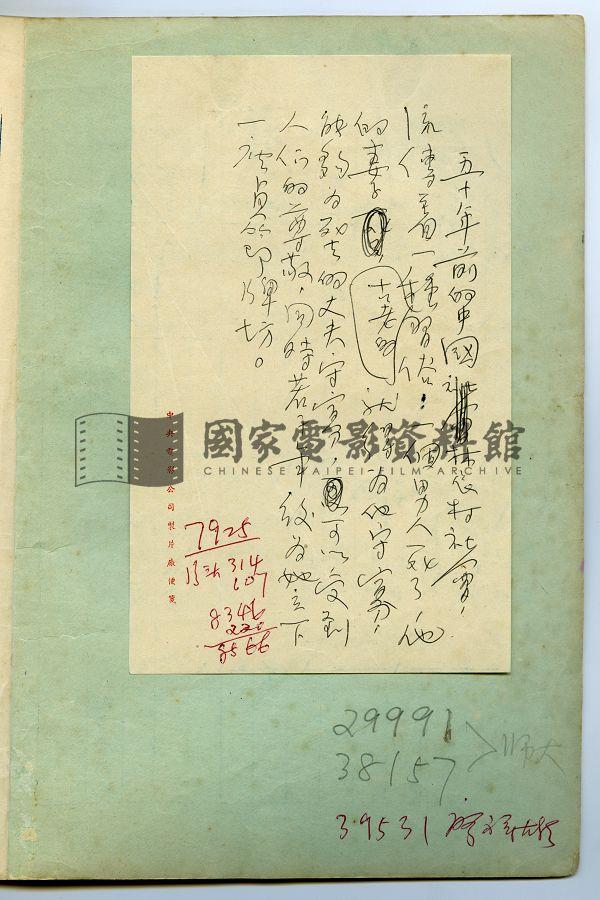 五十年前的中國農村社會，
流傳著一種習俗：一個男人死了，他
的妻子 古老的 就要為他守寡，
能夠為死去的丈夫守寡，可以受到
人们的尊敬，同時若干年後為她立下
一座貞節牌坊。
中央電影公司製片廠便箋
7925
314
107
8346
220
8566
國家電影資料館
CHINESE TAIPEI FILM ARCHIVE
29991
38157
师大
39531